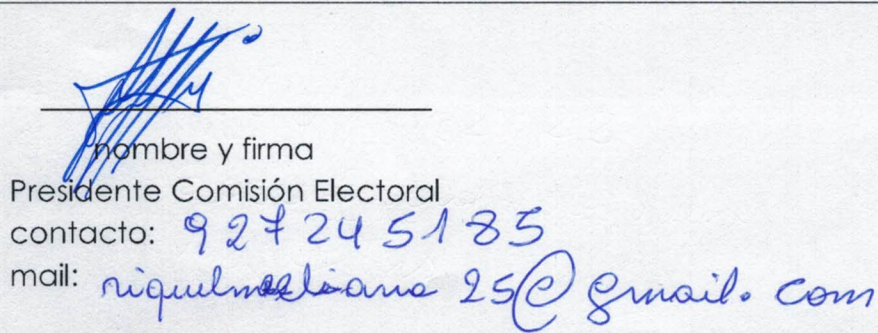 nombre y firma
Presidente Comisión Electoral
contacto: 927245185
mail: riquelmeliana25@gmail.com